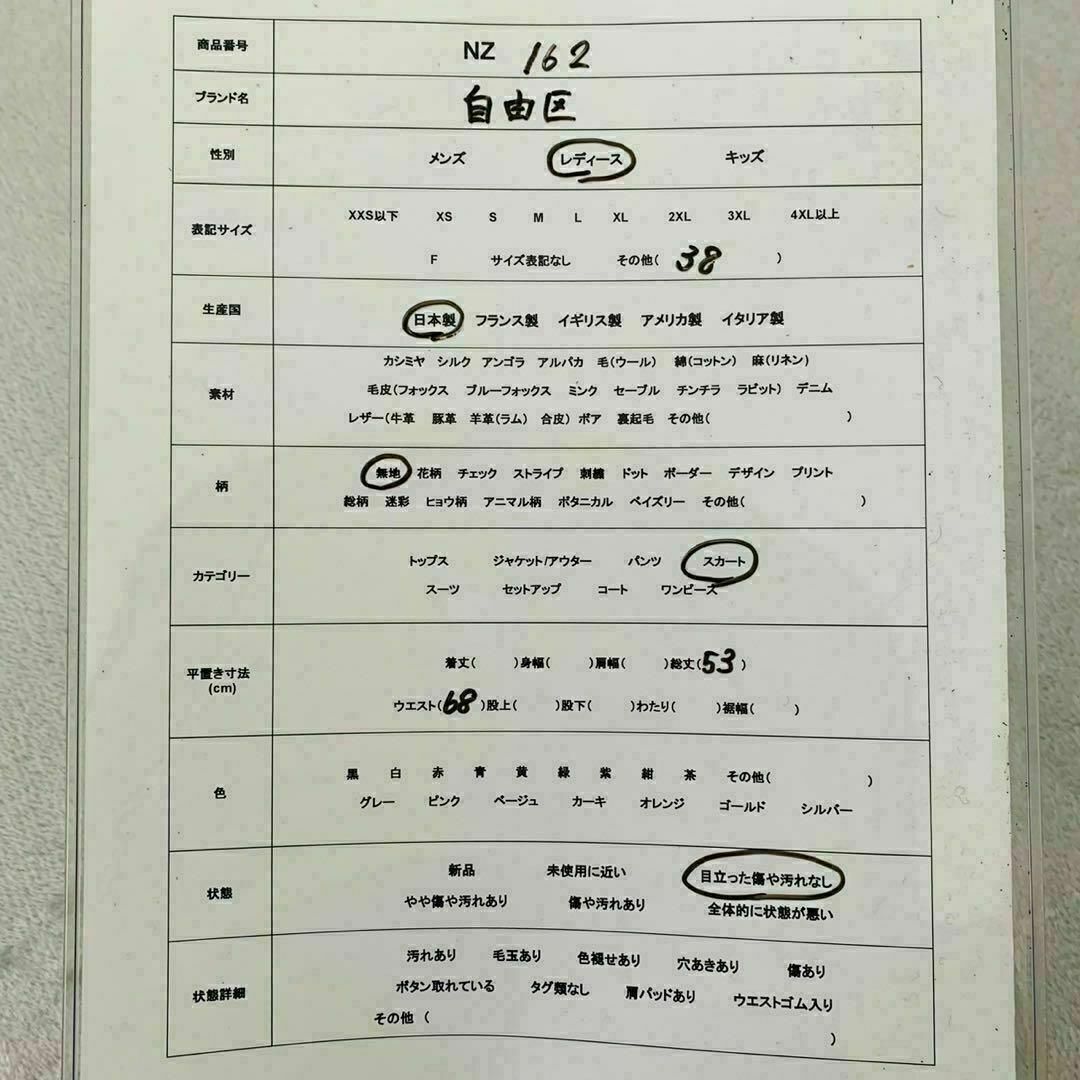 商品番号 NZ 162
ブランド名 自由区
性別 メンズ レディース キッズ
表記サイズ
XXS以下 XS S M L XL 2XL 3XL 4XL以上
F サイズ表記なし その他( 38 )
生産国 日本製 フランス製 イギリス製 アメリカ製 イタリア製
素材
カシミヤ シルク アンゴラ アルパカ 毛(ウール) 綿(コットン) 麻(リネン)
毛皮(フォックス ブルーフォックス ミンク セーブル チンチラ ラビット) デニム
レザー(牛革 豚革 羊革(ラム) 合皮) ボア 裏起毛 その他( )
柄
無地 花柄 チェック ストライプ 刺繍 ドット ボーダー デザイン プリント
総柄 迷彩 ヒョウ柄 アニマル柄 ボタニカル ペイズリー その他( )
カテゴリー
トップス ジャケット/アウター パンツ スカート
スーツ セットアップ コート ワンピース
平置き寸法
(cm)
着丈( )身幅( )肩幅( )総丈(53 )
ウエスト(68 )股上( )股下( )わたり( )裾幅( )
色
黒 白 赤 青 黄 緑 紫 紺 茶 その他( )
グレー ピンク ベージュ カーキ オレンジ ゴールド シルバー
状態
新品 未使用に近い 目立った傷や汚れなし
やや傷や汚れあり 傷や汚れあり 全体的に状態が悪い
状態詳細
汚れあり 毛玉あり 色褪せあり 穴あきあり 傷あり
ボタン取れている タグ類なし 肩パッドあり ウエストゴム入り
その他 ( )